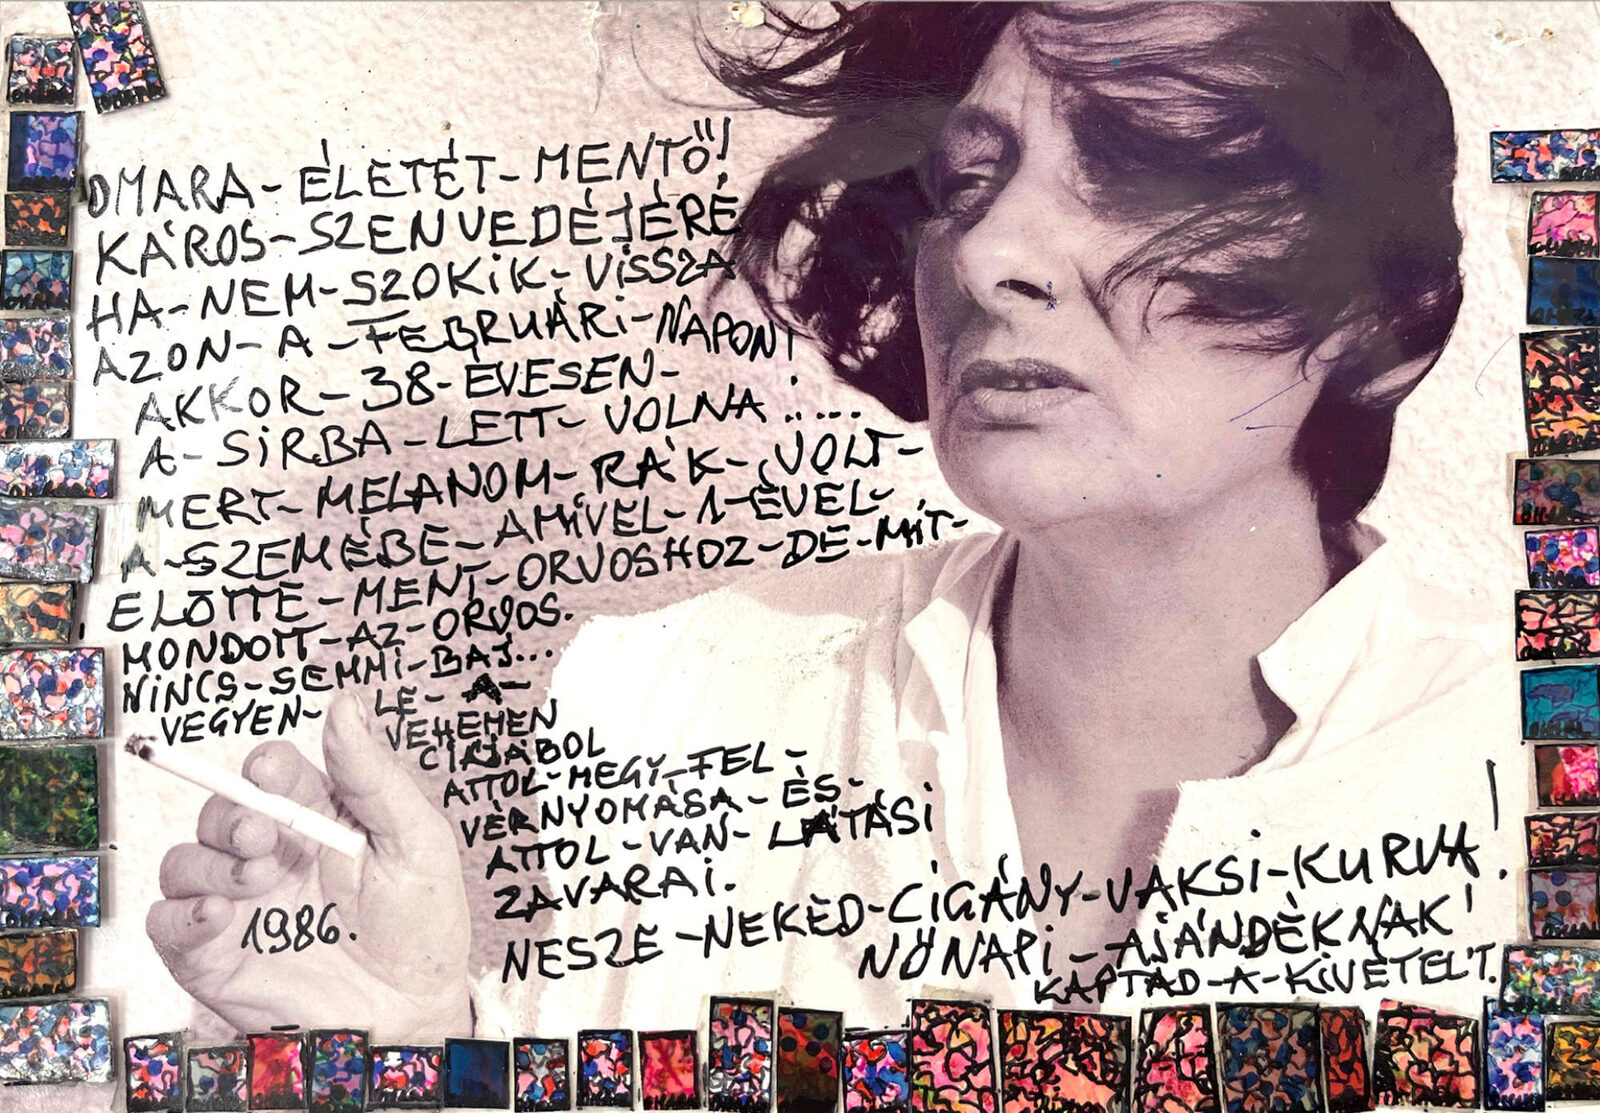 OMARA-ÉLETÉT-MENTŐ!
KÁROS-SZENVEDÉJÉRÉ
HA-NEM-SZOKIK-VISSZA
AZON-A-FEBRUÁRI-NAPON!
AKKOR-38-ÉVESEN-
A-SIRBA-LETT-VOLNA.....
MERT-MELANOM-RÁK-VOLT-
A-SZEMÉBE-AMIVEL-1-ÉVEL-
ELŐTTE-MENT-ORVOSHOZ-DE-MIT-
MONDOTT-AZ-ORVOS.
NINCS-SEMMI-BAJ...
VEGYEN-LE-A-
VEHEMEN
CIÁJÁBOL
ATTOL-MEGY-FEL-
VÉRNYOMÁSA-ÉS-
ATTOL-VAN-LÁTÁSI
ZAVARAI.
NESZE-NEKED-CIGÁNY-VAKSI-KURVA!
NŐNAPI-AJÁNDÉKNAK!
KAPTAD-A-KIVÉTELT.
1986.